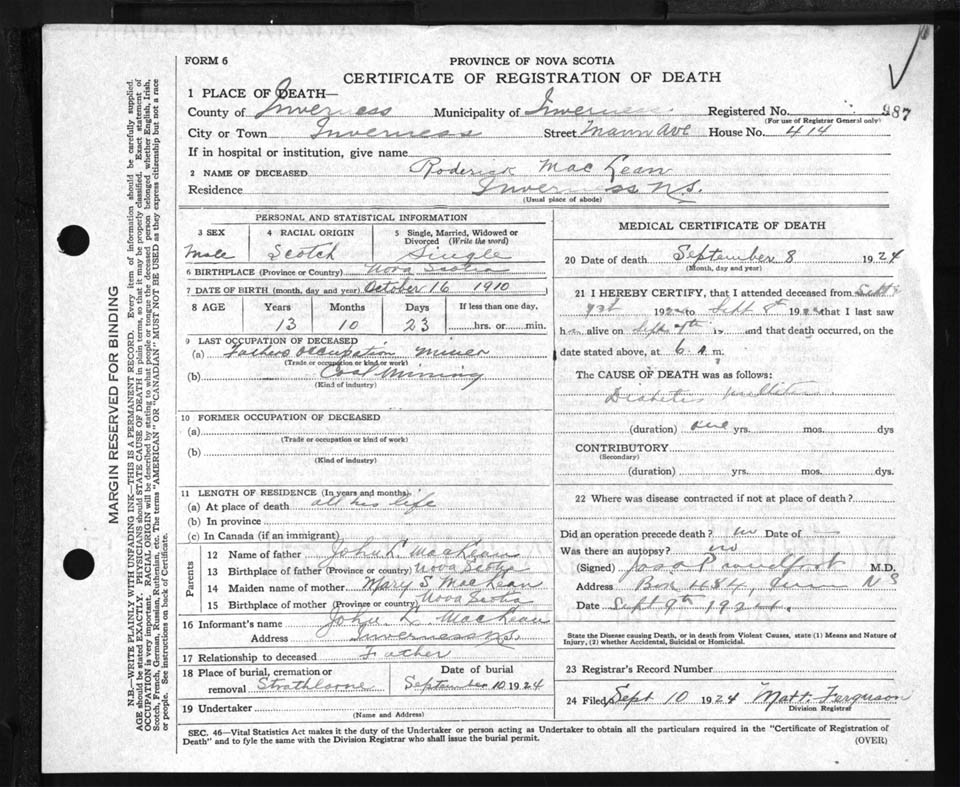 FORM 6
PROVINCE OF NOVA SCOTIA
CERTIFICATE OF REGISTRATION OF DEATH
1 PLACE OF DEATH—
County of Inverness Municipality of Inverness Registered No. 287
(For use of Registrar General only)
City or Town Inverness Street Mann Ave House No. 414
If in hospital or institution, give name
2 NAME OF DECEASED Roderick MacLean
Residence Inverness N.S.
(Usual place of abode)
PERSONAL AND STATISTICAL INFORMATION
3 SEX 4 RACIAL ORIGIN 5 Single, Married, Widowed or Divorced (Write the word)
Male Scotch Single
6 BIRTHPLACE (Province or Country) Nova Scotia
7 DATE OF BIRTH (month, day and year) October 16 1910
8 AGE Years Months Days If less than one day.
13 10 23 hrs. or min.
9 LAST OCCUPATION OF DECEASED
(a) Fathers Occupation Miner
(Trade or occupation or kind of work)
(b) Coal Mining
(Kind of industry)
10 FORMER OCCUPATION OF DECEASED
(a)
(Trade or occupation or kind of work)
(b)
(Kind of industry)
11 LENGTH OF RESIDENCE (In years and months)
(a) At place of death all his life
(b) In province
(c) In Canada (if an immigrant)
Parents
12 Name of father John L. MacLean
13 Birthplace of father (Province or country) Nova Scotia
14 Maiden name of mother Mary S MacLean
15 Birthplace of mother (Province or country) Nova Scotia
16 Informant's name John L. MacLean
Address Inverness N.S.
17 Relationship to deceased Father
18 Place of burial, cremation or removal Strathlorne Date of burial September 10 1924
19 Undertaker
(Name and Address)
MEDICAL CERTIFICATE OF DEATH
20 Date of death September 8 1924
(Month, day and year)
21 I HEREBY CERTIFY, that I attended deceased from Sept
192 to Sept 8th 192 that I last saw
h alive on Sept and that death occurred, on the
date stated above, at 6 a.m.
The CAUSE OF DEATH was as follows:
Diabetis Mellitus
(duration) one yrs. mos. dys
CONTRIBUTORY
(Secondary)
(duration) yrs. mos. dys.
22 Where was disease contracted if not at place of death?
Did an operation precede death? no Date of
Was there an autopsy? no
(Signed) M.D.
Address Box 484, N S
Date Sept 9th 1924.
State the Disease causing Death, or in death from Violent Causes, state (1) Means and Nature of Injury, (2) whether Accidental, Suicidal or Homicidal.
23 Registrar's Record Number
24 Filed Sept 10 1924 Matt. Ferguson
Division Registrar
SEC. 46—Vital Statistics Act makes it the duty of the Undertaker or person acting as Undertaker to obtain all the particulars required in the "Certificate of Registration of
Death" and to fyle the same with the Division Registrar who shall issue the burial permit. (OVER)
MARGIN RESERVED FOR BINDING
N.B.—WRITE PLAINLY WITH UNFADING INK—THIS IS A PERMANENT RECORD. Every item of information should be carefully supplied.
AGE should be stated EXACTLY. PHYSICIANS should STATE CAUSE OF DEATH in plain terms, so that it may be properly classified. Exact statement of
OCCUPATION is very important. RACIAL ORIGIN will be described by stating to what people or tongue the deceased person belonged whether English, Irish,
Scotch, French, German, Russian, Ruthenian, etc. The terms "AMERICAN" OR "CANADIAN" MUST NOT BE USED as they express citizenship but not a race
or people. See instructions on back of Certificate.